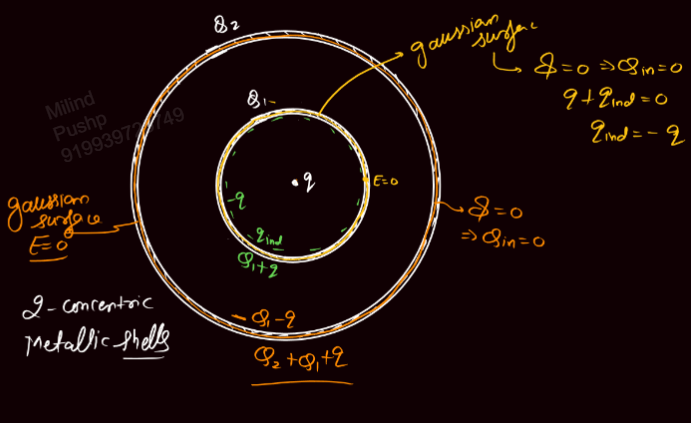 Q₂
gaussian
surface
Φ=0 ⇒Qin=0
q+qind=0
qind=-q
Milind
Pushp
Q₁
q
E=0
-q
qind
Q₁+q
gaussian
surface
E=0
Φ=0
⇒Qin=0
2-concentric
Metallic shells
-Q₁-q
Q₂+Q₁+q